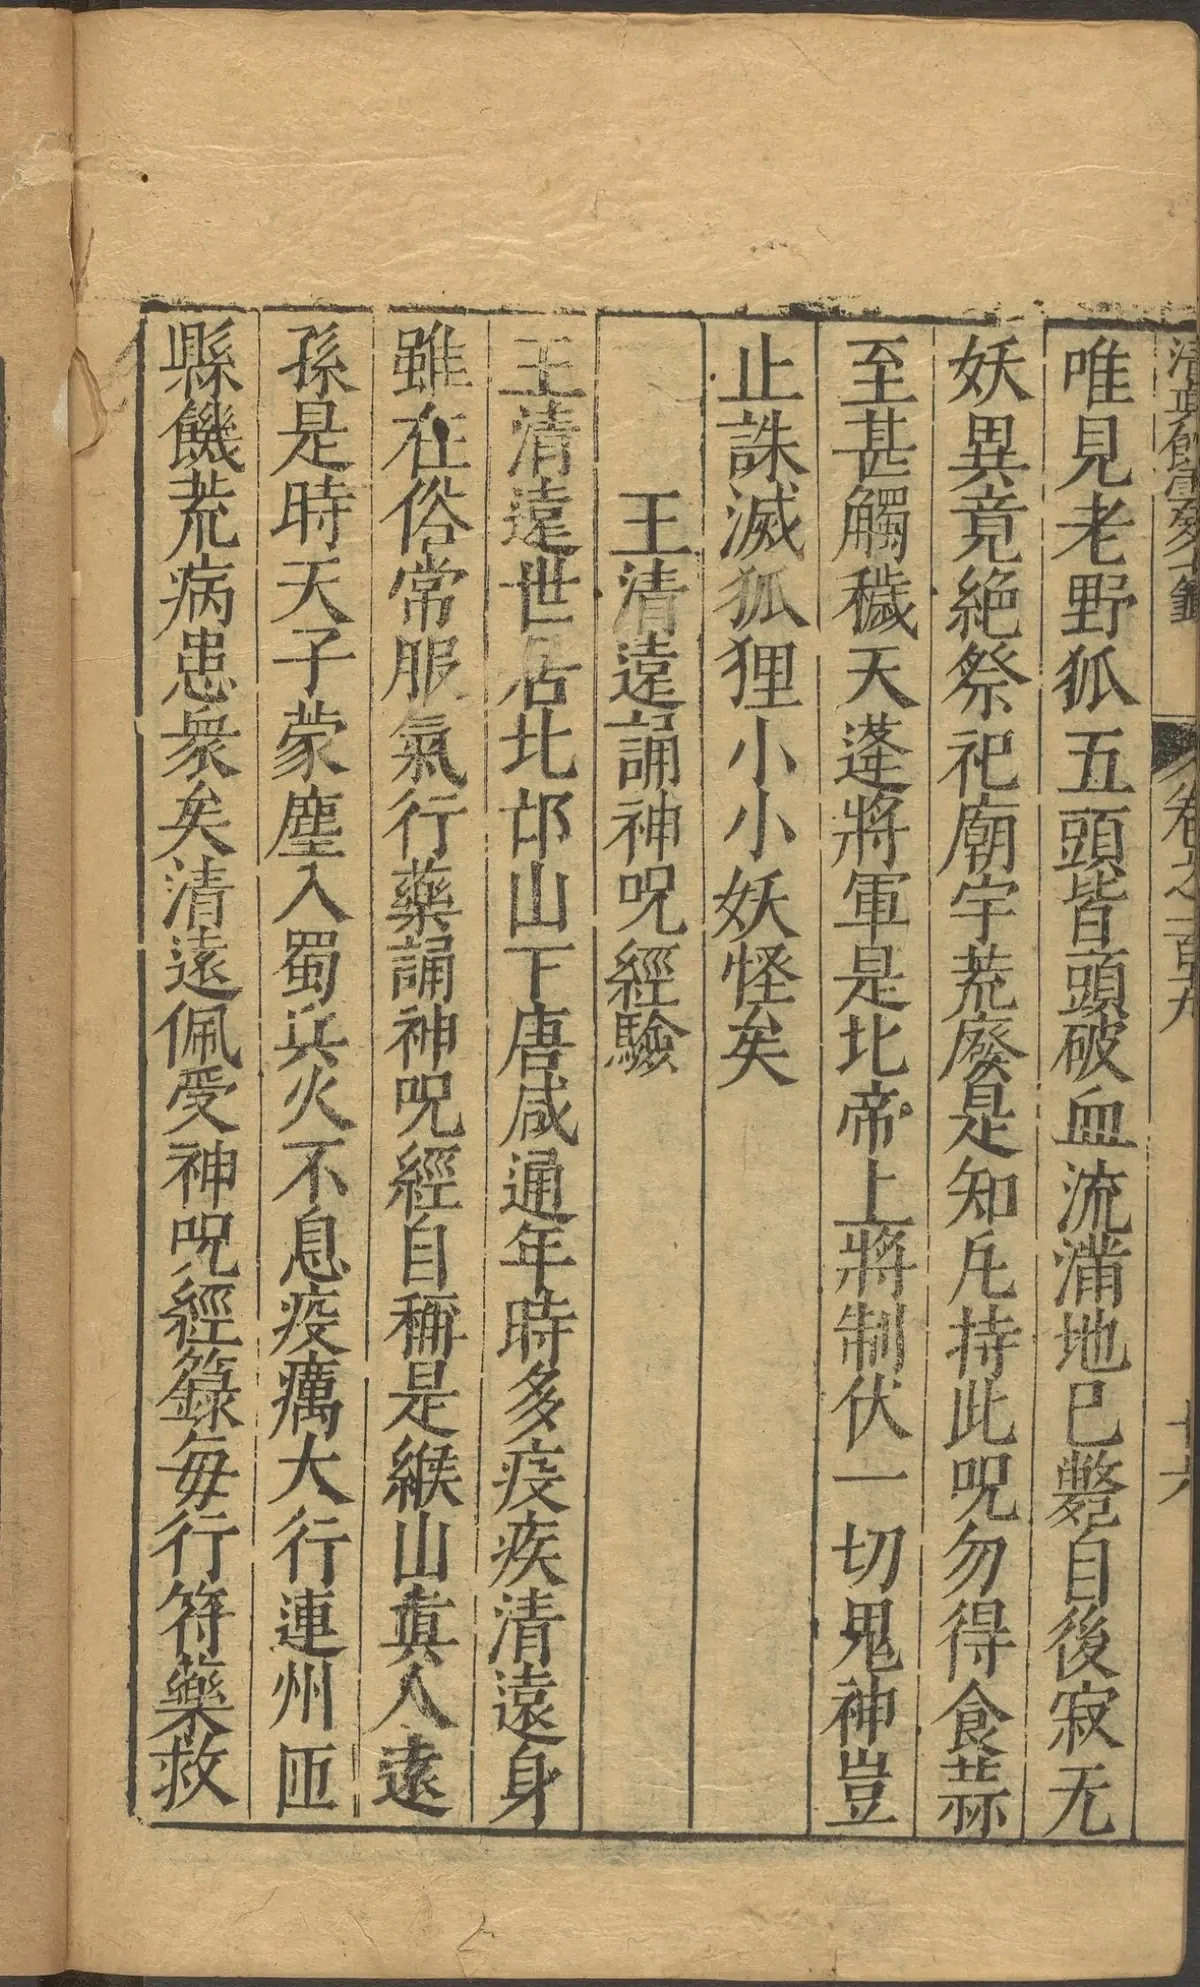 唯見老野狐五頭皆頭破血流滿地巳斃自後寂无
妖異竟絶祭祀廟宇荒廢是知凡持此呪勿得食蒜
至甚觸穢天蓬將軍是北帝上將制伏一切鬼神豈
止誅滅狐狸小小妖怪矣
王清遠誦神呪經驗
王清遠世居北邙山下唐咸通年時多疫疾清遠身
雖在俗常服氣行藥誦神呪經自稱是緱山眞人遠
孫是時天子蒙塵入蜀兵火不息疫癘大行連州匝
縣饑荒病患衆矣清遠佩受神呪經籙每行符藥救